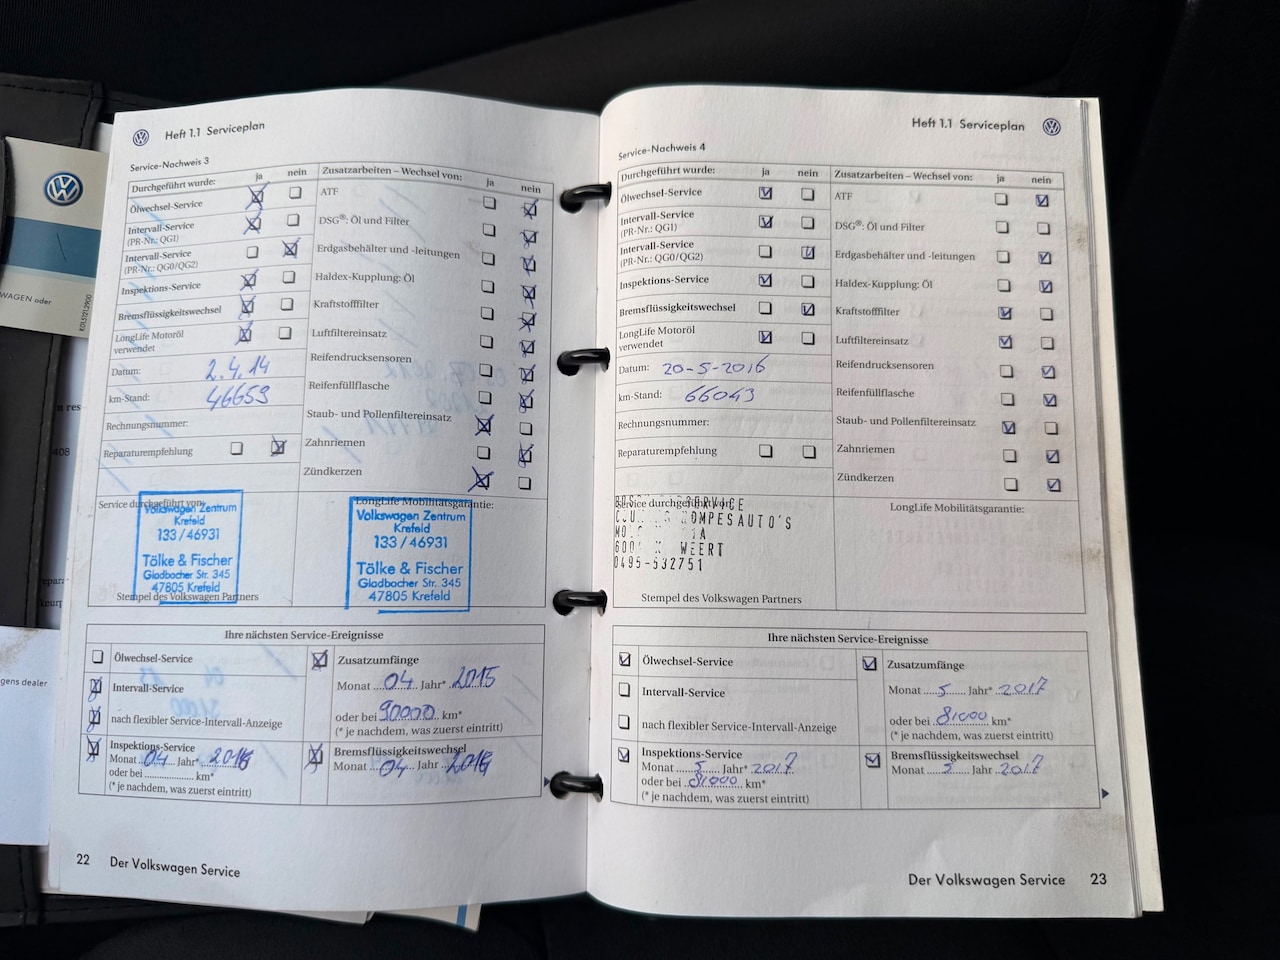 Heft 1.1 Serviceplan
Service-Nachweis 3
Durchgeführt wurde: ja nein
Ölwechsel-Service
Intervall-Service
(PR-Nr.: QG1)
Intervall-Service
(PR-Nr.: QG0/QG2)
Inspektions-Service
Bremsflüssigkeitswechsel
LongLife Motoröl
verwendet
Datum: 2.4.14
km-Stand: 46659
Rechnungsnummer:
Reparaturempfehlung
Zusatzarbeiten – Wechsel von: ja nein
ATF
DSG®: Öl und Filter
Erdgasbehälter und -leitungen
Haldex-Kupplung: Öl
Kraftstofffilter
Luftfiltereinsatz
Reifendrucksensoren
Reifenfüllflasche
Staub- und Pollenfiltereinsatz
Zahnriemen
Zündkerzen
Service durchgeführt von:
Volkswagen Zentrum
Krefeld
133/46931
Tölke & Fischer
Gladbacher Str. 345
47805 Krefeld
Stempel des Volkswagen Partners
LongLife Mobilitätsgarantie:
Volkswagen Zentrum
Krefeld
133/46931
Tölke & Fischer
Gladbacher Str. 345
47805 Krefeld
Ihre nächsten Service-Ereignisse
Ölwechsel-Service
Intervall-Service
nach flexibler Service-Intervall-Anzeige
Inspektions-Service
Monat 04 Jahr* 2016
oder bei km*
(* je nachdem, was zuerst eintritt)
Zusatzumfänge
Monat 04 Jahr* 2015
oder bei 90000 km*
(* je nachdem, was zuerst eintritt)
Bremsflüssigkeitswechsel
Monat 04 Jahr 2016
22 Der Volkswagen Service
Heft 1.1 Serviceplan
Service-Nachweis 4
Durchgeführt wurde: ja nein
Ölwechsel-Service
Intervall-Service
(PR-Nr.: QG1)
Intervall-Service
(PR-Nr.: QG0/QG2)
Inspektions-Service
Bremsflüssigkeitswechsel
LongLife Motoröl
verwendet
Datum: 20-5-2016
km-Stand: 66043
Rechnungsnummer:
Reparaturempfehlung
Zusatzarbeiten – Wechsel von: ja nein
ATF
DSG®: Öl und Filter
Erdgasbehälter und -leitungen
Haldex-Kupplung: Öl
Kraftstofffilter
Luftfiltereinsatz
Reifendrucksensoren
Reifenfüllflasche
Staub- und Pollenfiltereinsatz
Zahnriemen
Zündkerzen
Service durchgeführt von:
WEERT
0495-532751
Stempel des Volkswagen Partners
LongLife Mobilitätsgarantie:
Ihre nächsten Service-Ereignisse
Ölwechsel-Service
Intervall-Service
nach flexibler Service-Intervall-Anzeige
Inspektions-Service
Monat 5 Jahr* 2017
oder bei 81000 km*
(* je nachdem, was zuerst eintritt)
Zusatzumfänge
Monat 5 Jahr* 2017
oder bei 81000 km*
(* je nachdem, was zuerst eintritt)
Bremsflüssigkeitswechsel
Monat 5 Jahr 2017
Der Volkswagen Service 23
WAGEN oder
gens dealer